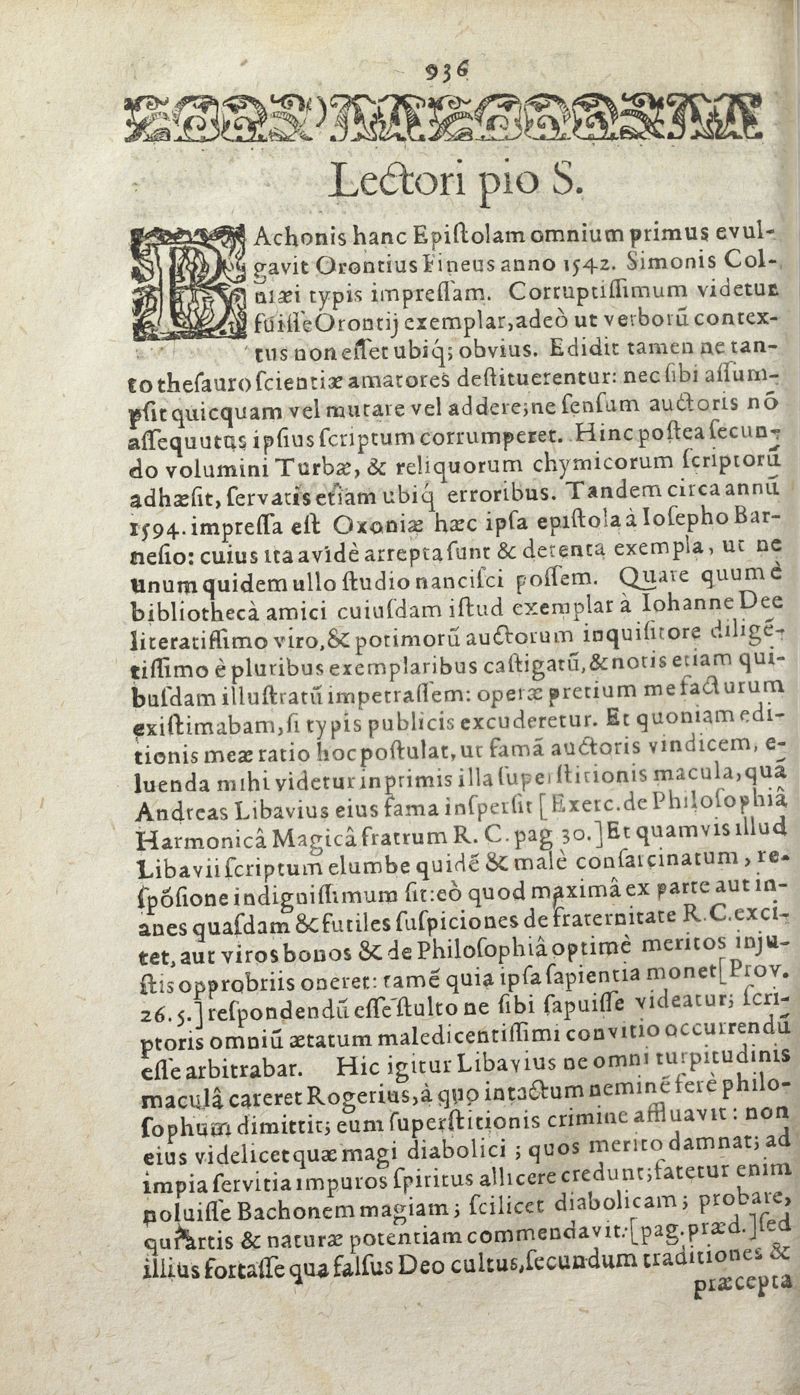 936
Lectori pio S.
BAchonis hanc Epiſtolam omnium primus evul-
gavit Orontius Fineus anno 1542. Simonis Col-
niæi typis impreſſam. Corruptiſſimum videtur
fuiſſe Orontij exemplar, adeò ut verborū contex-
tus non eſſet ubiq; obvius. Edidit tamen ne tan-
to theſauro ſcientiæ amatores deſtituerentur: nec ſibi aſſum-
pſit quicquam vel mutare vel addere; ne ſenſum auctoris nō
aſſequutus ipſius ſcriptum corrumperet. Hinc poſtea ſecun-
do volumini Turbæ, & reliquorum chymicorum ſcriptorū
adhæſit, ſervatis etiam ubiq́ erroribus. Tandem circa annū
1594. impreſſa eſt Oxoniæ hæc ipſa epiſtola à Ioſepho Bar-
neſio: cuius ita avidè arrepta ſunt & detenta exempla, ut ne
unum quidem ullo ſtudio nanciſci poſſem. Quare quum è
bibliothecà amici cuiuſdam iſtud exemplar à Iohanne Dee
literatiſſimo viro, & potimorū auctorum inquiſitore diligē-
tiſſimo è pluribus exemplaribus caſtigatū, & notis etiam qui-
buſdam illuſtratū impetraſſem: operæ pretium me facturum
exiſtimabam, ſi typis publicis excuderetur. Et quoniam edi-
tionis meæ ratio hoc poſtulat, ut famā auctoris vindicem, e-
luenda mihi videtur inprimis illa ſuperſtitionis macula, quā
Andreas Libavius eius fama inſperſit [Exerc. de Philoſophiâ
Harmonicâ Magicâ fratrum R. C. pag 30.] Et quamvis illud
Libavii ſcriptum elumbe quidē & malè confarcinatum, re-
ſpōſione indigniſſimum ſit: eò quod maximâ ex parte aut in-
anes quaſdam & futiles ſuſpiciones de fraternitate R. C. exci-
tet, aut viros bonos & de Philoſophiâ optimè meritos inju-
ſtis opprobriis oneret: tamē quia ipſa ſapientia monet [Prov.
26. 5.] reſpondendū eſſe ſtulto ne ſibi ſapuiſſe videatur; ſcri-
ptoris omniū ætatum maledicentiſſimi convitio occurrendū
eſſe arbitrabar. Hic igitur Libavius ne omni turpitudinis
maculâ careret Rogerius, à quo intactum neminē fere philo-
ſophum dimittit; eum ſuperſtitionis crimine affluavit: non
eius videlicet quæ magi diabolici; quos merito damnat; ad
impia ſervitia impuros ſpiritus allicere credunt; fatetur enim
noluiſſe Bachonem magiam; ſcilicet diabolicam; probare,
qui artis & naturæ potentiam commendavit: [pag. præd.] ſed
illius fortaſſe qua falſus Deo cultus, ſecundum traditiones &
præcepta